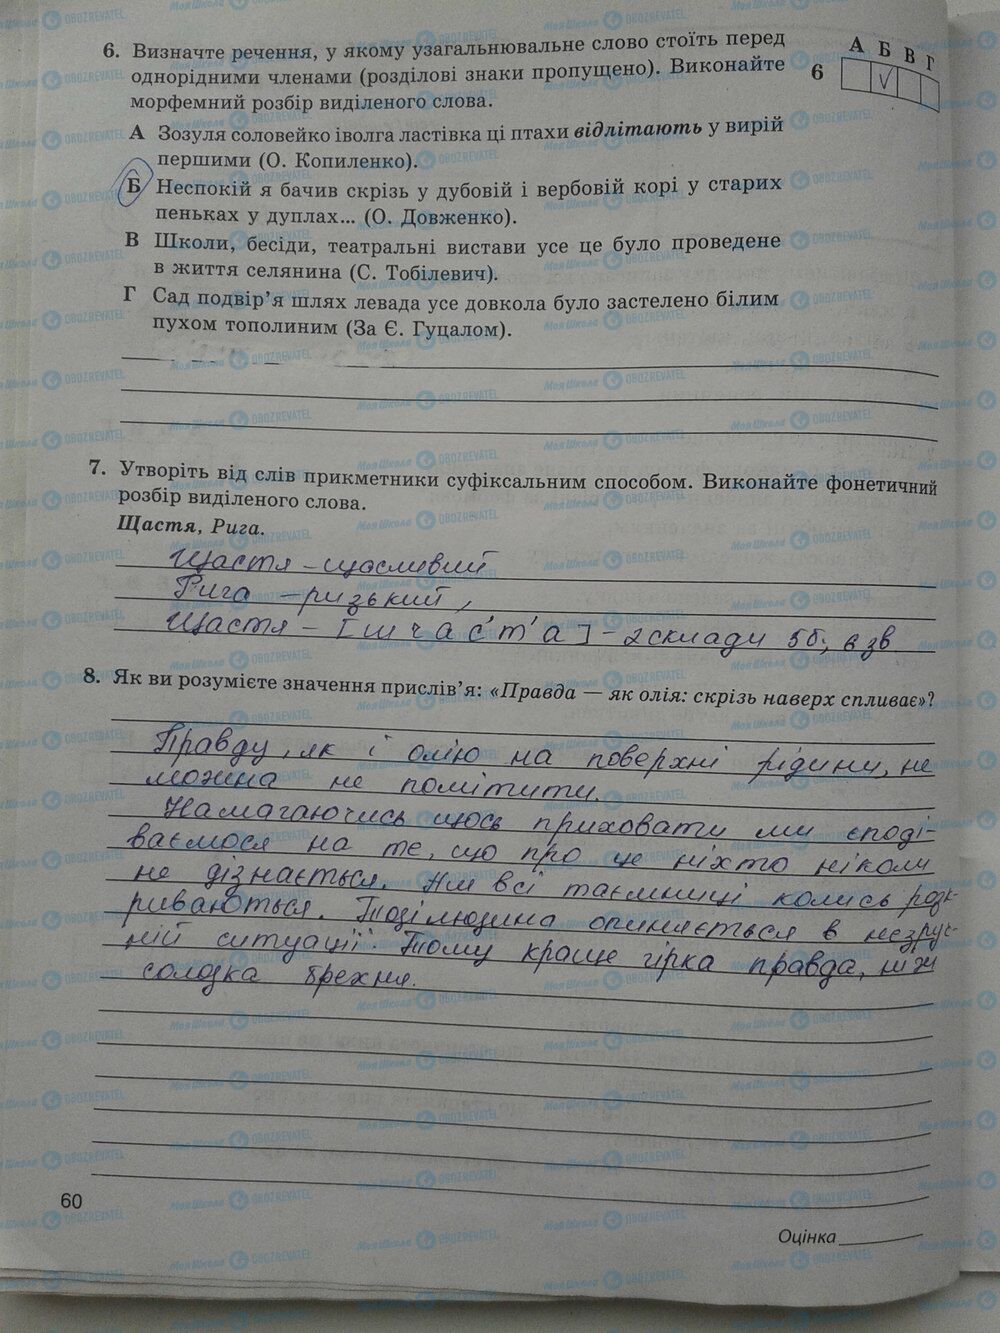 6. Визначте речення, у якому узагальнювальне слово стоїть перед
однорідними членами (розділові знаки пропущено). Виконайте
морфемний розбір виділеного слова.
6 А Б В Г
А Зозуля соловейко іволга ластівка ці птахи відлітають у вирій
першими (О. Копиленко).
Б Неспокій я бачив скрізь у дубовій і вербовій корі у старих
пеньках у дуплах... (О. Довженко).
В Школи, бесіди, театральні вистави усе це було проведене
в життя селянина (С. Тобілевич).
Г Сад подвір’я шлях левада усе довкола було застелено білим
пухом тополиним (За Є. Гуцалом).
7. Утворіть від слів прикметники суфіксальним способом. Виконайте фонетичний
розбір виділеного слова.
Щастя, Рига.
Щастя – щасливий
Рига – ризький,
Щастя – [ш ч а с' т' а] – 2 склади 5б; 6 зв
8. Як ви розумієте значення прислів’я: «Правда — як олія: скрізь наверх спливає»?
Правду, як і олію на поверхні рідини, не
можна не помітити.
Намагаючись щось приховати ми споді-
ваємося на те, що про це ніхто ніколи
не дізнається. Але всі таємниці колись розк-
риваються. Тоді людина опиняється в незруч-
ній ситуації. Тому краще гірка правда, ніж
солодка брехня.
60
Оцінка
МояШкола OBOZREVATEL